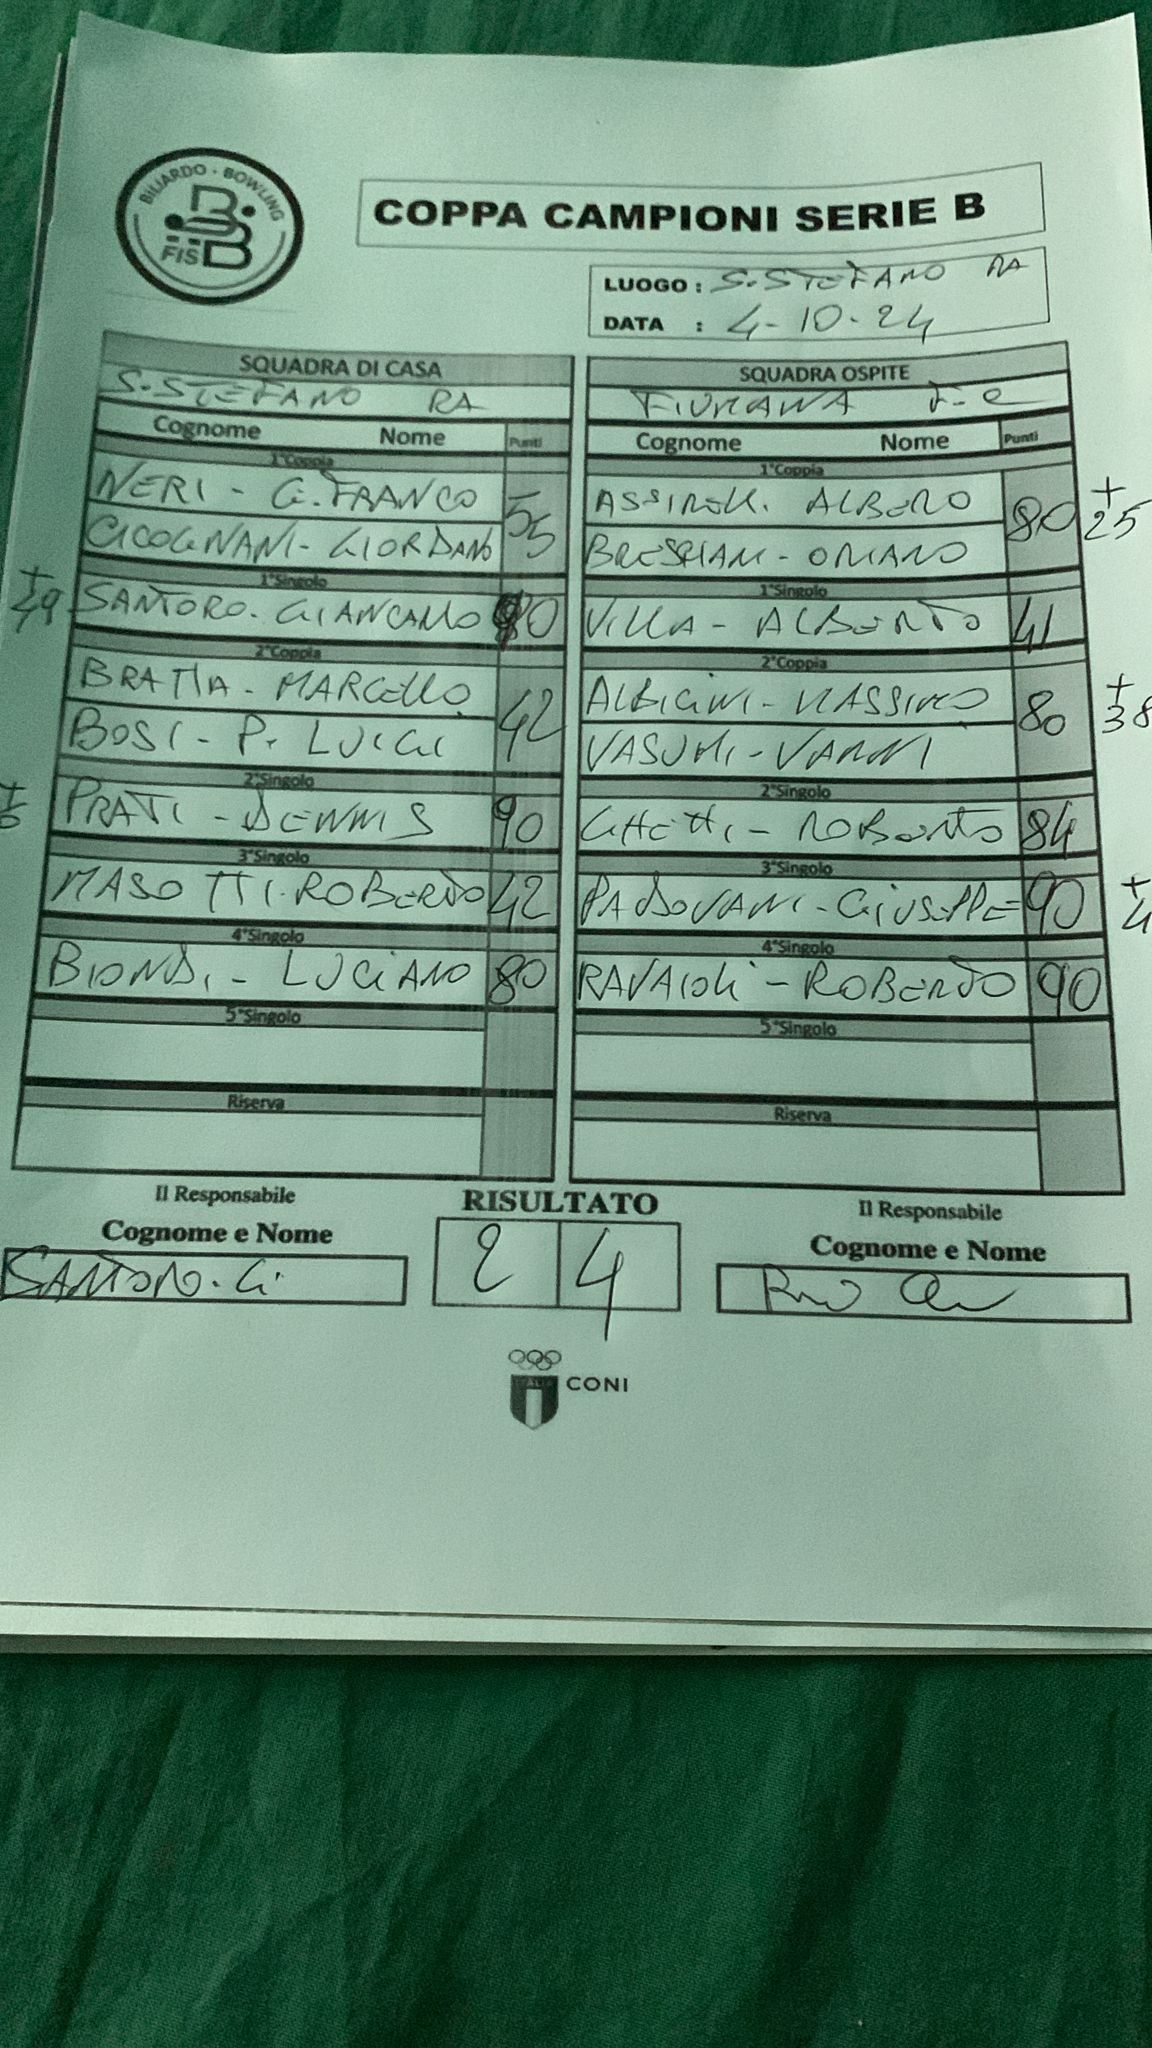 BILIARDO - BOWLING
FISBB
COPPA CAMPIONI SERIE B
LUOGO : S. STEFANO RA
DATA : 4-10-24
SQUADRA DI CASA
S. STEFANO RA
Cognome Nome Punti
1°Coppia
NERI - G. FRANCO
55
CICOGNANI - GIORDANO
1°Singolo
SANTORO - GIANCARLO 90
2°Coppia
BRATTIA - MARCELLO
42
BOSI - P. LUIGI
2°Singolo
PRATI - DENNIS 90
3°Singolo
MASOTTI - ROBERTO 42
4°Singolo
BIONDI - LUCIANO 80
5°Singolo
Riserva
SQUADRA OSPITE
FIUMANA
Cognome Nome Punti
1°Coppia
ALBERO
80 +25
BRESCIANI - ORIANO
1°Singolo
VILLA - ALBERTO 41
2°Coppia
ALBICINI - MASSIMO
80 +38
VANNI
2°Singolo
GHETTI - ROBERTO 84
3°Singolo
PADOVANI - GIUSEPPE 90
4°Singolo
RAVAIOLI - ROBERTO 90
5°Singolo
Riserva
Il Responsabile
Cognome e Nome
SANTORO. G.
RISULTATO
2 4
Il Responsabile
Cognome e Nome
ITALIA
CONI